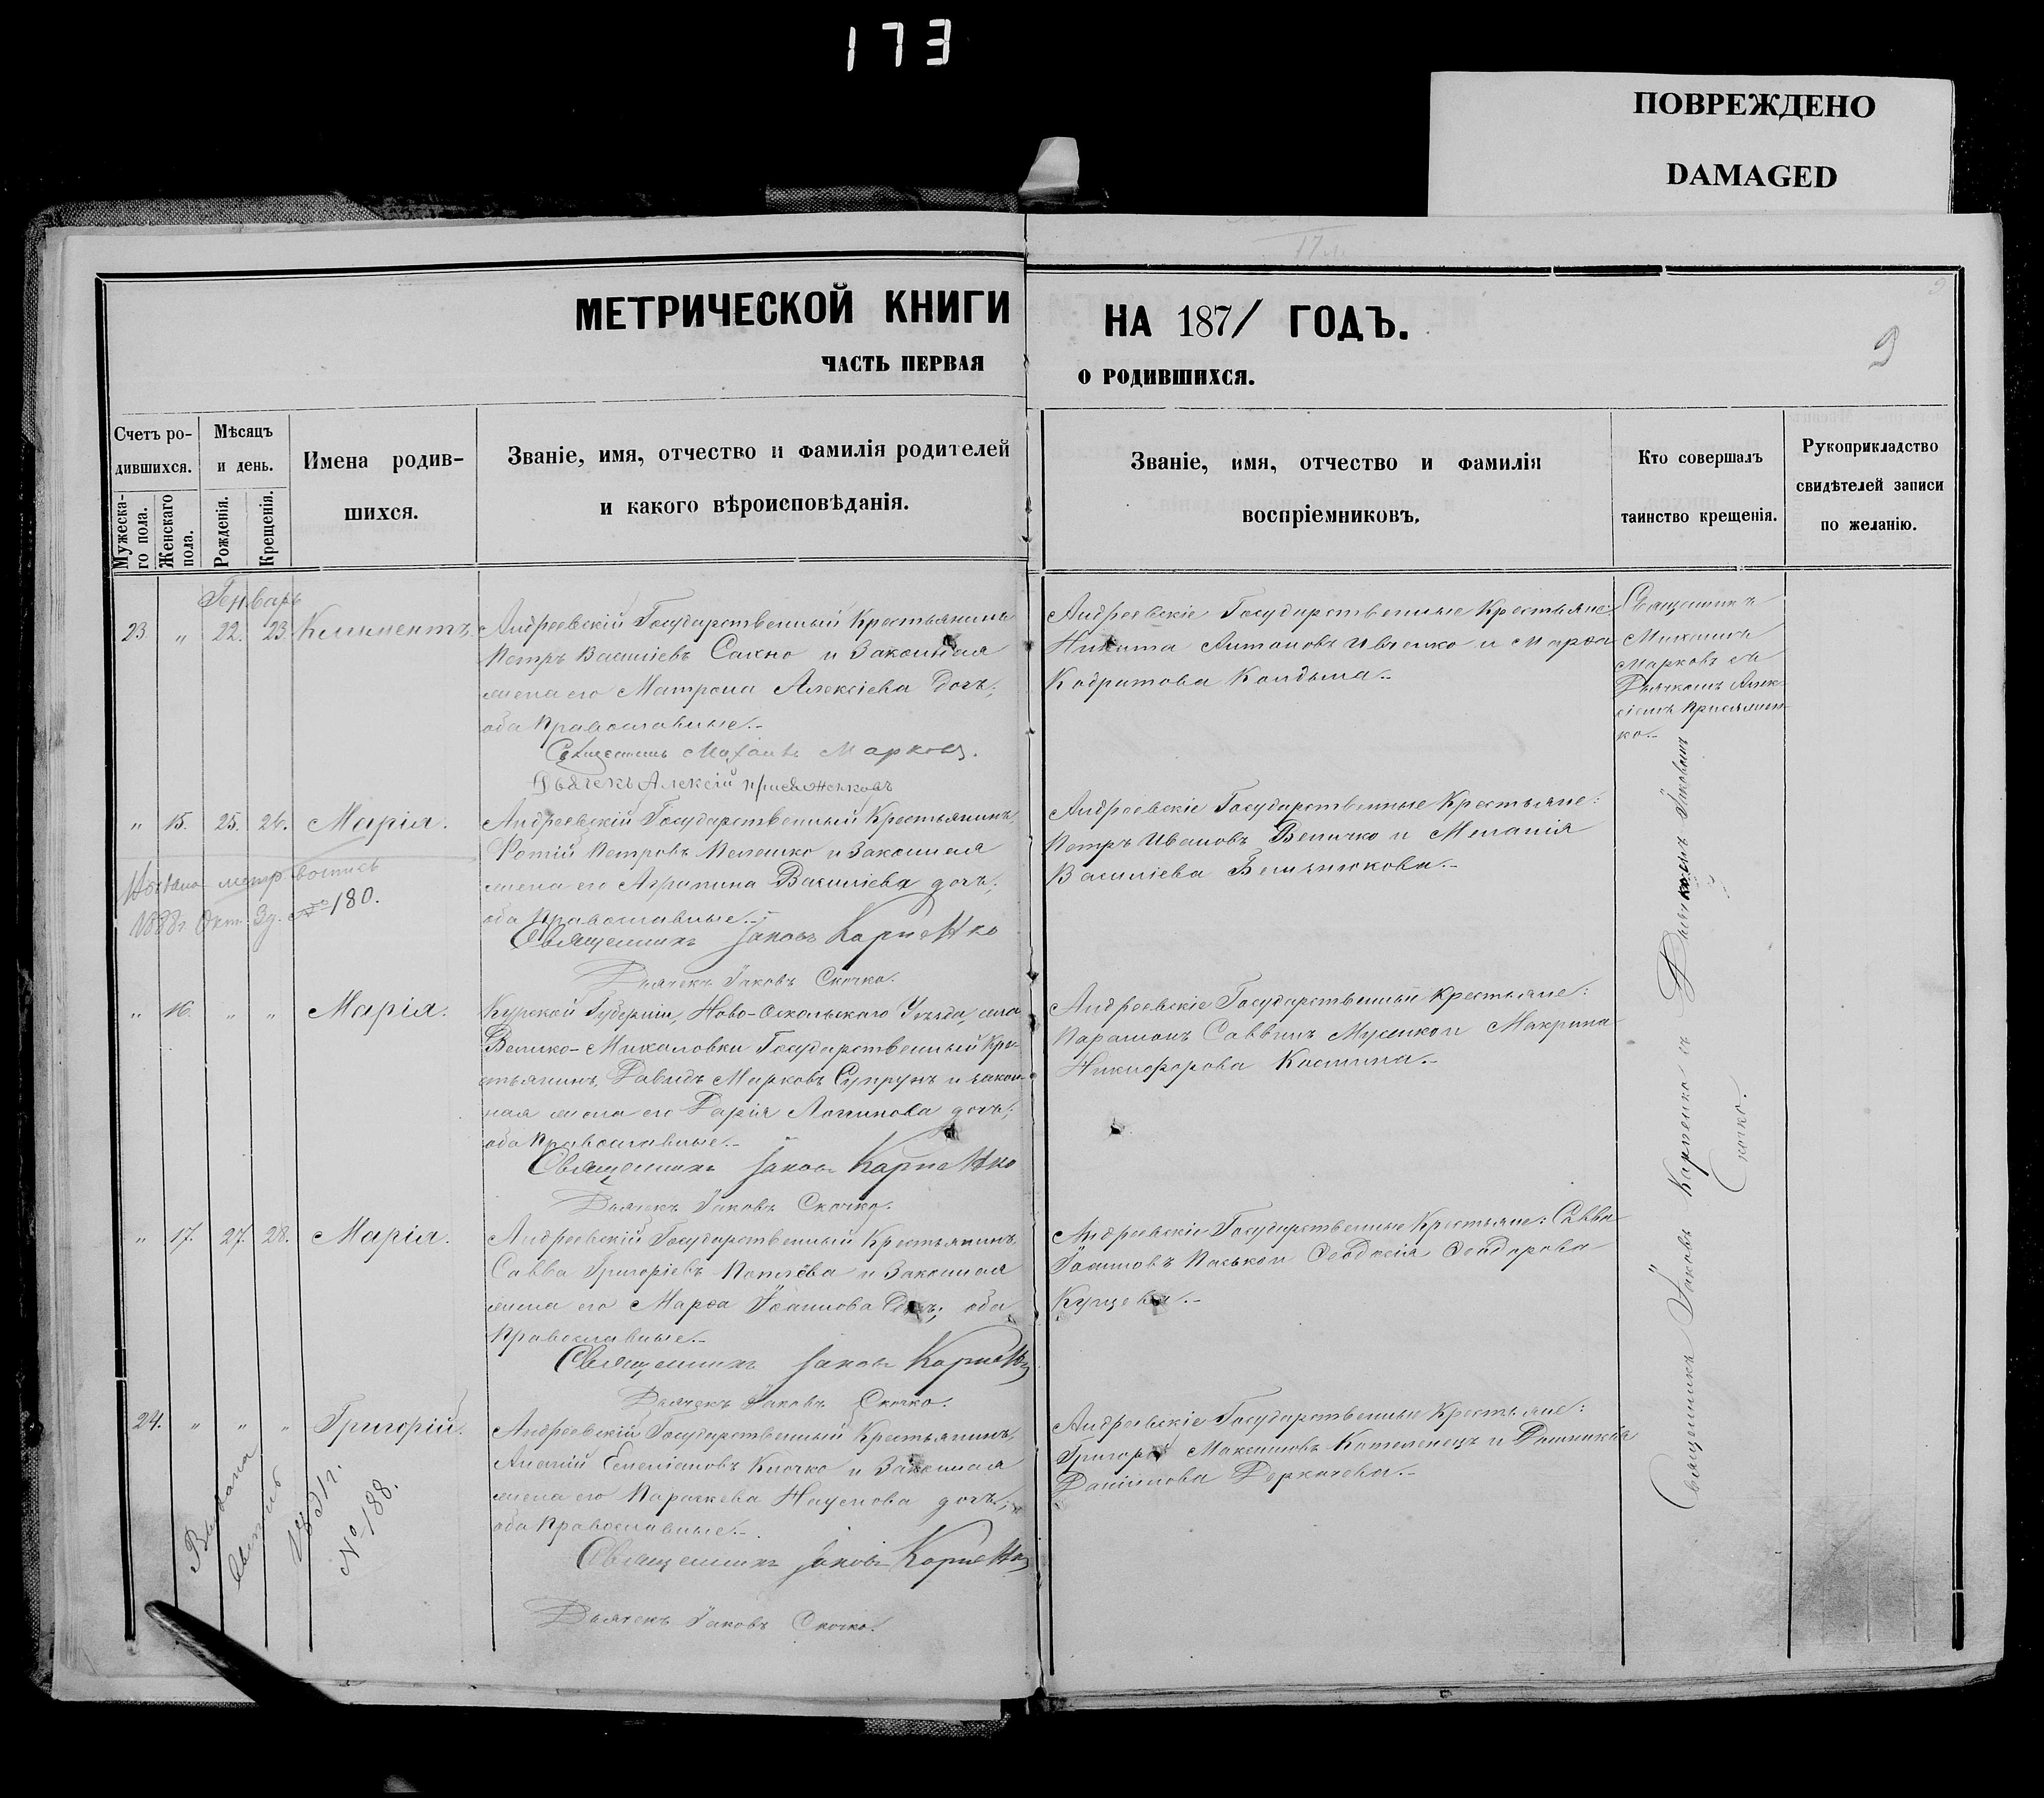 173
ПОВРЕЖДЕНО
DAMAGED
17 л.
МЕТРИЧЕСКОЙ КНИГИ НА 1871 ГОДЪ.
9
ЧАСТЬ ПЕРВАЯ О РОДИВШИХСЯ.
Счетъ ро-
дившихся.
Мужеска-
го пола.
Женскаго
пола.
Мѣсяцъ
и день.
Рожденія.
Крещенія.
Имена родив-
шихся.
Званіе, имя, отчество и фамилія родителей
и какого вѣроисповѣданія.
Званіе, имя, отчество и фамилія
воспріемниковъ.
Кто совершалъ
таинство крещенія.
Рукоприкладство
свидѣтелей записи
по желанію.
Генварь
23. „ 22. 23. Климентъ.
Андреевскій Государственный Крестьянинъ
Петръ Василіевъ Сахно и Законная
жена его Матрона Алексіева дочь,
оба Православные.-
Священникъ Михаилъ Марковъ.
Дьячекъ Алексій
Андреевскіе Государственные Крестьяне:
Никита Антоновъ Ивченко и Марѳа
Кодратова Колдыма.-
Священникъ
Михаилъ
Марковъ съ
Дьячкомъ Алек-
сіемъ
ко.-
„ 15. 25. 26. Марія.
метр
1888г Окт. 3д. № 180.
Андреевскій Государственный Крестьянинъ,
Фотій Петровъ Мелешко и Законная
жена его Агрипина Василіева дочь,
оба Православные.-
Священникъ Іаковъ Карпенко
Дьячекъ Іаковъ Скочко.
Андреевскіе Государственные Крестьяне:
Петръ Ивановъ Величко и Меланія
Василіева
„ 16. „ „ Марія.
Курской Губерніи, Ново-Оскольскаго Уѣзда, села
Велико-Михаловки Государственный Кре-
стьянинъ, Давидъ Марковъ Супрунъ и закон-
ная жена его Дарія Логинова дочь,
оба Православные.-
Священникъ Іаковъ Карпенко
Дьячекъ Іаковъ Скочко.
Андреевскіе Государственный Крестьяне:
Парамонъ Саввинъ и Макрина
Никифорова Костина.-
„ 17. 27. 28. Марія.
Андреевскій Государственный Крестьянинъ,
Савва Григоріевъ и Законная
жена его Марѳа Іоаннова дочь, оба
Православные.-
Священникъ Іаковъ Карпенко
Дьячекъ Іаковъ Скочко.
Андреевскіе Государственные Крестьяне: Савва
Іоанновъ Паськои Ѳеодосія Ѳеодорова
24. „ „ „ Григорій.
Выдана
№ 188.
Андреевскій Государственный Крестьянинъ,
Ананій Емеліановъ Клочко и Законная
жена его Параскева Наумова дочь,
оба Православные.-
Священникъ Іаковъ Карпенко
Дьячекъ Іаковъ Скочко.
Андреевскіе Государственные Крестьяне:
Григорій Максимовъ Котеленецъ и Домникія
Даніилова Деркачева.-
Священникъ Іаковъ Карпенко съ Дьячкомъ Іаковомъ
Скочко.